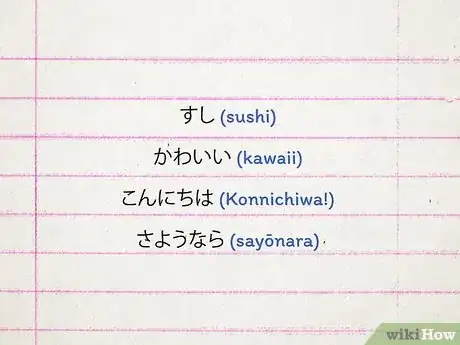 すし (sushi)
かわいい (kawaii)
こんにちは (Konnichiwa!)
さようなら (sayōnara)
wikiHow